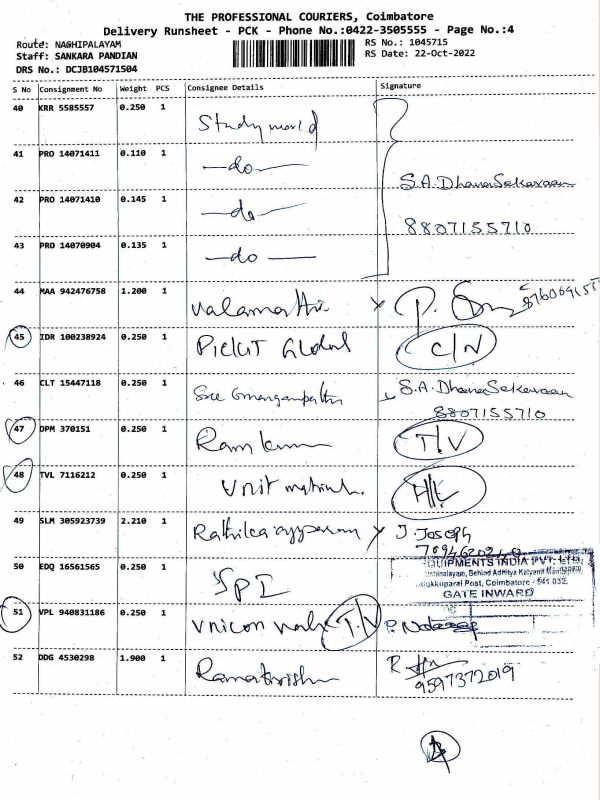 THE PROFESSIONAL COURIERS, Coimbatore
Delivery Runsheet - PCK - Phone No.:0422-3505555 - Page No.:4
Route: NAGHIPALAYAM
RS No.: 1045715
Staff: SANKARA PANDIAN
RS Date: 22-Oct-2022
DRS No.: DCJB104571504
S No Consignment No Weight PCS Consignee Details Signature
40 KRR 5585557 0.250 1 Study world
41 PRO 14071411 0.110 1 —do— S.A. Dhana Sekaraan
42 PRO 14071410 0.145 1 —do— 8807155710
43 PRO 14070904 0.135 1 —do—
44 MAA 942476758 1.200 1
45 IDR 100238924 0.250 1 Global C/N
46 CLT 15447118 0.250 1 Sree S.A. Dhana Sekaraan
8807155710
47 DPM 370151 0.250 1 Ram T/V
48 TVL 7116212 0.250 1 Unit
49 SLM 305923739 2.210 1 J. Joseph
50 EDQ 16561565 0.250 1 SPI
QUIPMENTS INDIA PVT. LTD.
Behind Adhitya Kalyana
Post, Coimbatore - 641 032.
GATE INWARD
51 VPL 940831186 0.250 1 Unicon T/V P.
52 DDG 4530298 1.900 1 Ramakrishn R
9597372019